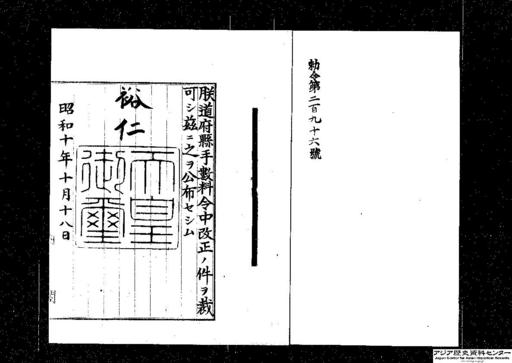 勅令第二百九十六號
朕道府縣手數料令中改正ノ件ヲ裁
可シ茲ニ之ヲ公布セシム
裕仁
天皇御璽
昭和十年十月十八日
アジア歴史資料センター
Japan Center for Asian Historical Records